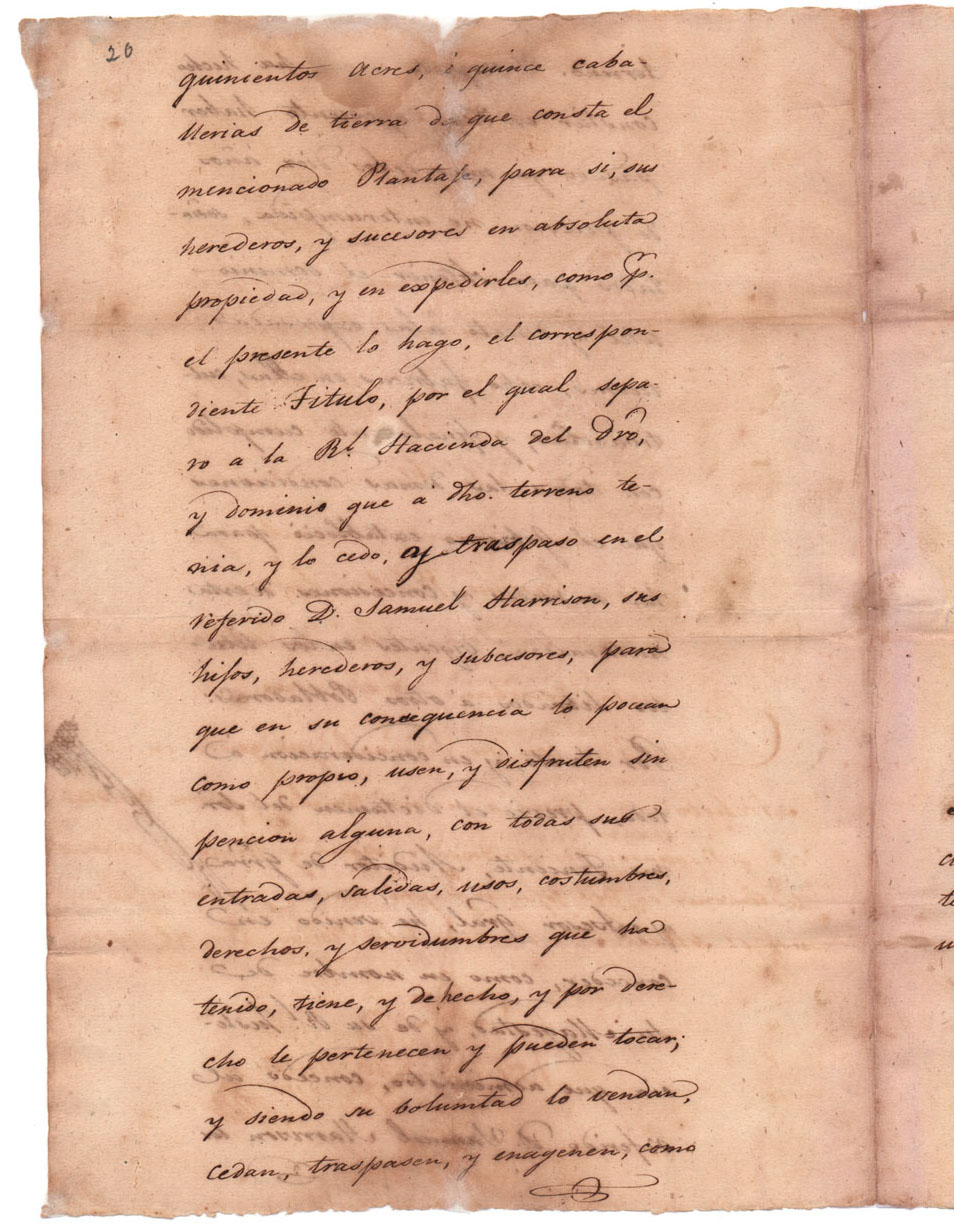 20
quinientos acres, i quince caba-
llerias de tierra de que consta el
mencionado Plantaje, para si, sus
herederos, y sucesores en absoluta
propiedad, y en expedirles, como p.r
el presente lo hago, el correspon-
diente Titulo, por el qual sepa-
ro à la Rl. Hacienda del Dro,
y dominio que a dho. terreno te-
nia, y lo cedo, y traspaso en el
referido D. Samuel Harrison, sus
hijos, herederos, y subcesores, para
que en su consequencia lo posean
como propio, usen, y disfruten sin
pencion alguna, con todas sus
entradas, salidas, usos, costumbres,
derechos, y servidumbres que ha
tenido, tiene, y de hecho, y por dere-
cho le pertenecen y pueden tocar;
y siendo su boluntad lo vendan,
cedan, traspasen, y enagenen, como